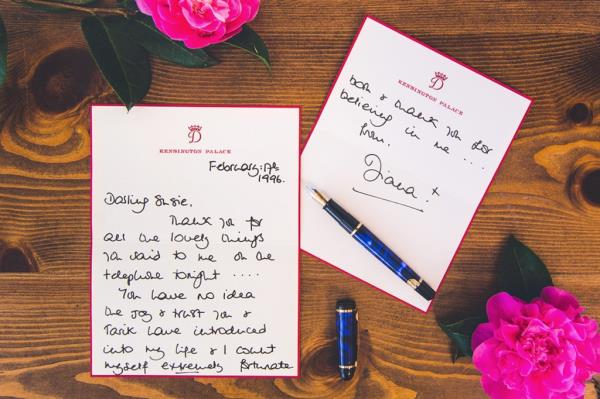 D
KENSINGTON PALACE
February: 17th
1996.
Darling Susie,
Thank you for
all the lovely things
you said to me on the
telephone tonight ....
You have no idea
the joy & trust you &
Tarik have introduced
into my life & I count
myself extremely fortunate
D
KENSINGTON PALACE
both & thank you for
believing in me ....
from,
Diana. x